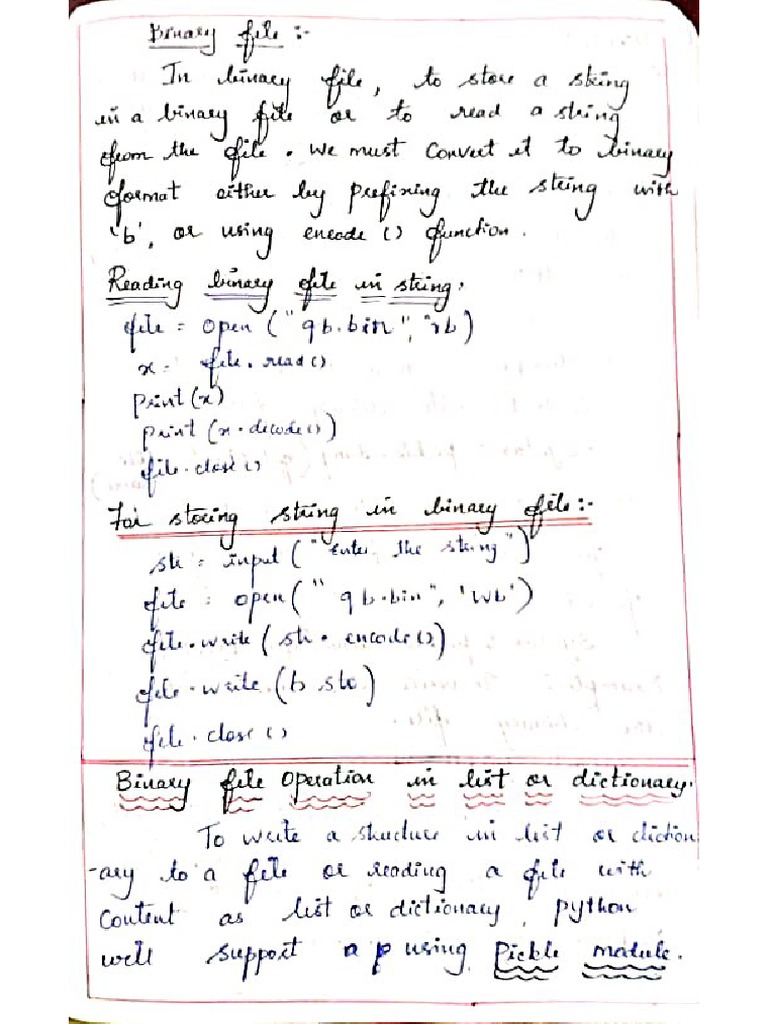 Binary file :-
In binary file, to store a string
in a binary file or to read a string
from the file. We must convert it to binary
format either by prefixing the string with
'b', or using encode () function.
Reading binary file in string:
file = open ("qb.bin", "rb)
x = file.read()
print (x)
print (x.decode())
file.close ()
For storing string in binary file:-
str = input ("Enter the string")
file = open ("qb.bin", 'wb')
file.write (str.encode())
file.write (b str)
file.close ()
Binary file operation in list or dictionary.
To write a structure in list or diction
-ary to a file or reading a file with
content as list or dictionary, python
well support a p using Pickle module.